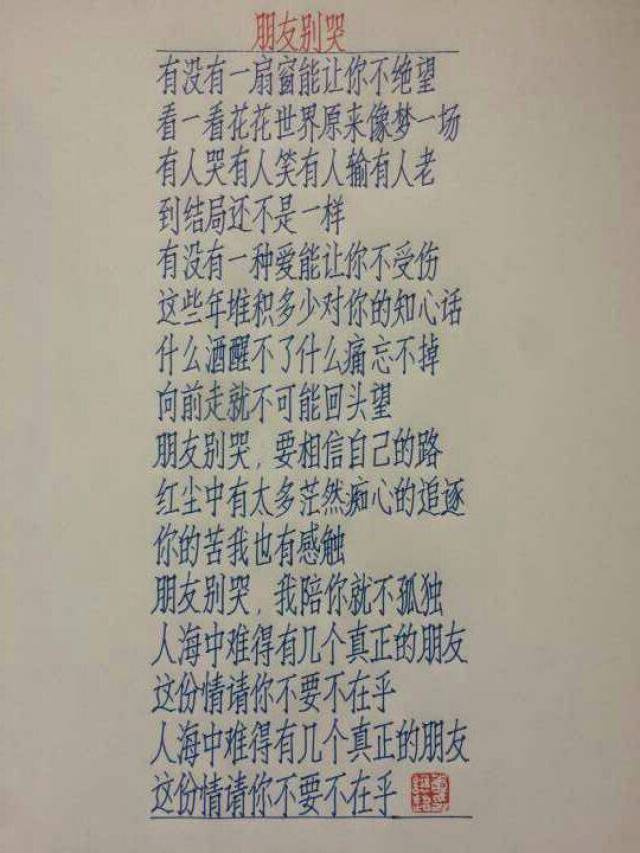 朋友别哭
有没有一扇窗能让你不绝望
看一看花花世界原来像梦一场
有人哭有人笑有人输有人老
到结局还不是一样
有没有一种爱能让你不受伤
这些年堆积多少对你的知心话
什么酒醒不了什么痛忘不掉
向前走就不可能回头望
朋友别哭，要相信自己的路
红尘中有太多茫然痴心的追逐
你的苦我也有感触
朋友别哭，我陪你就不孤独
人海中难得有几个真正的朋友
这份情请你不要不在乎
人海中难得有几个真正的朋友
这份情请你不要不在乎